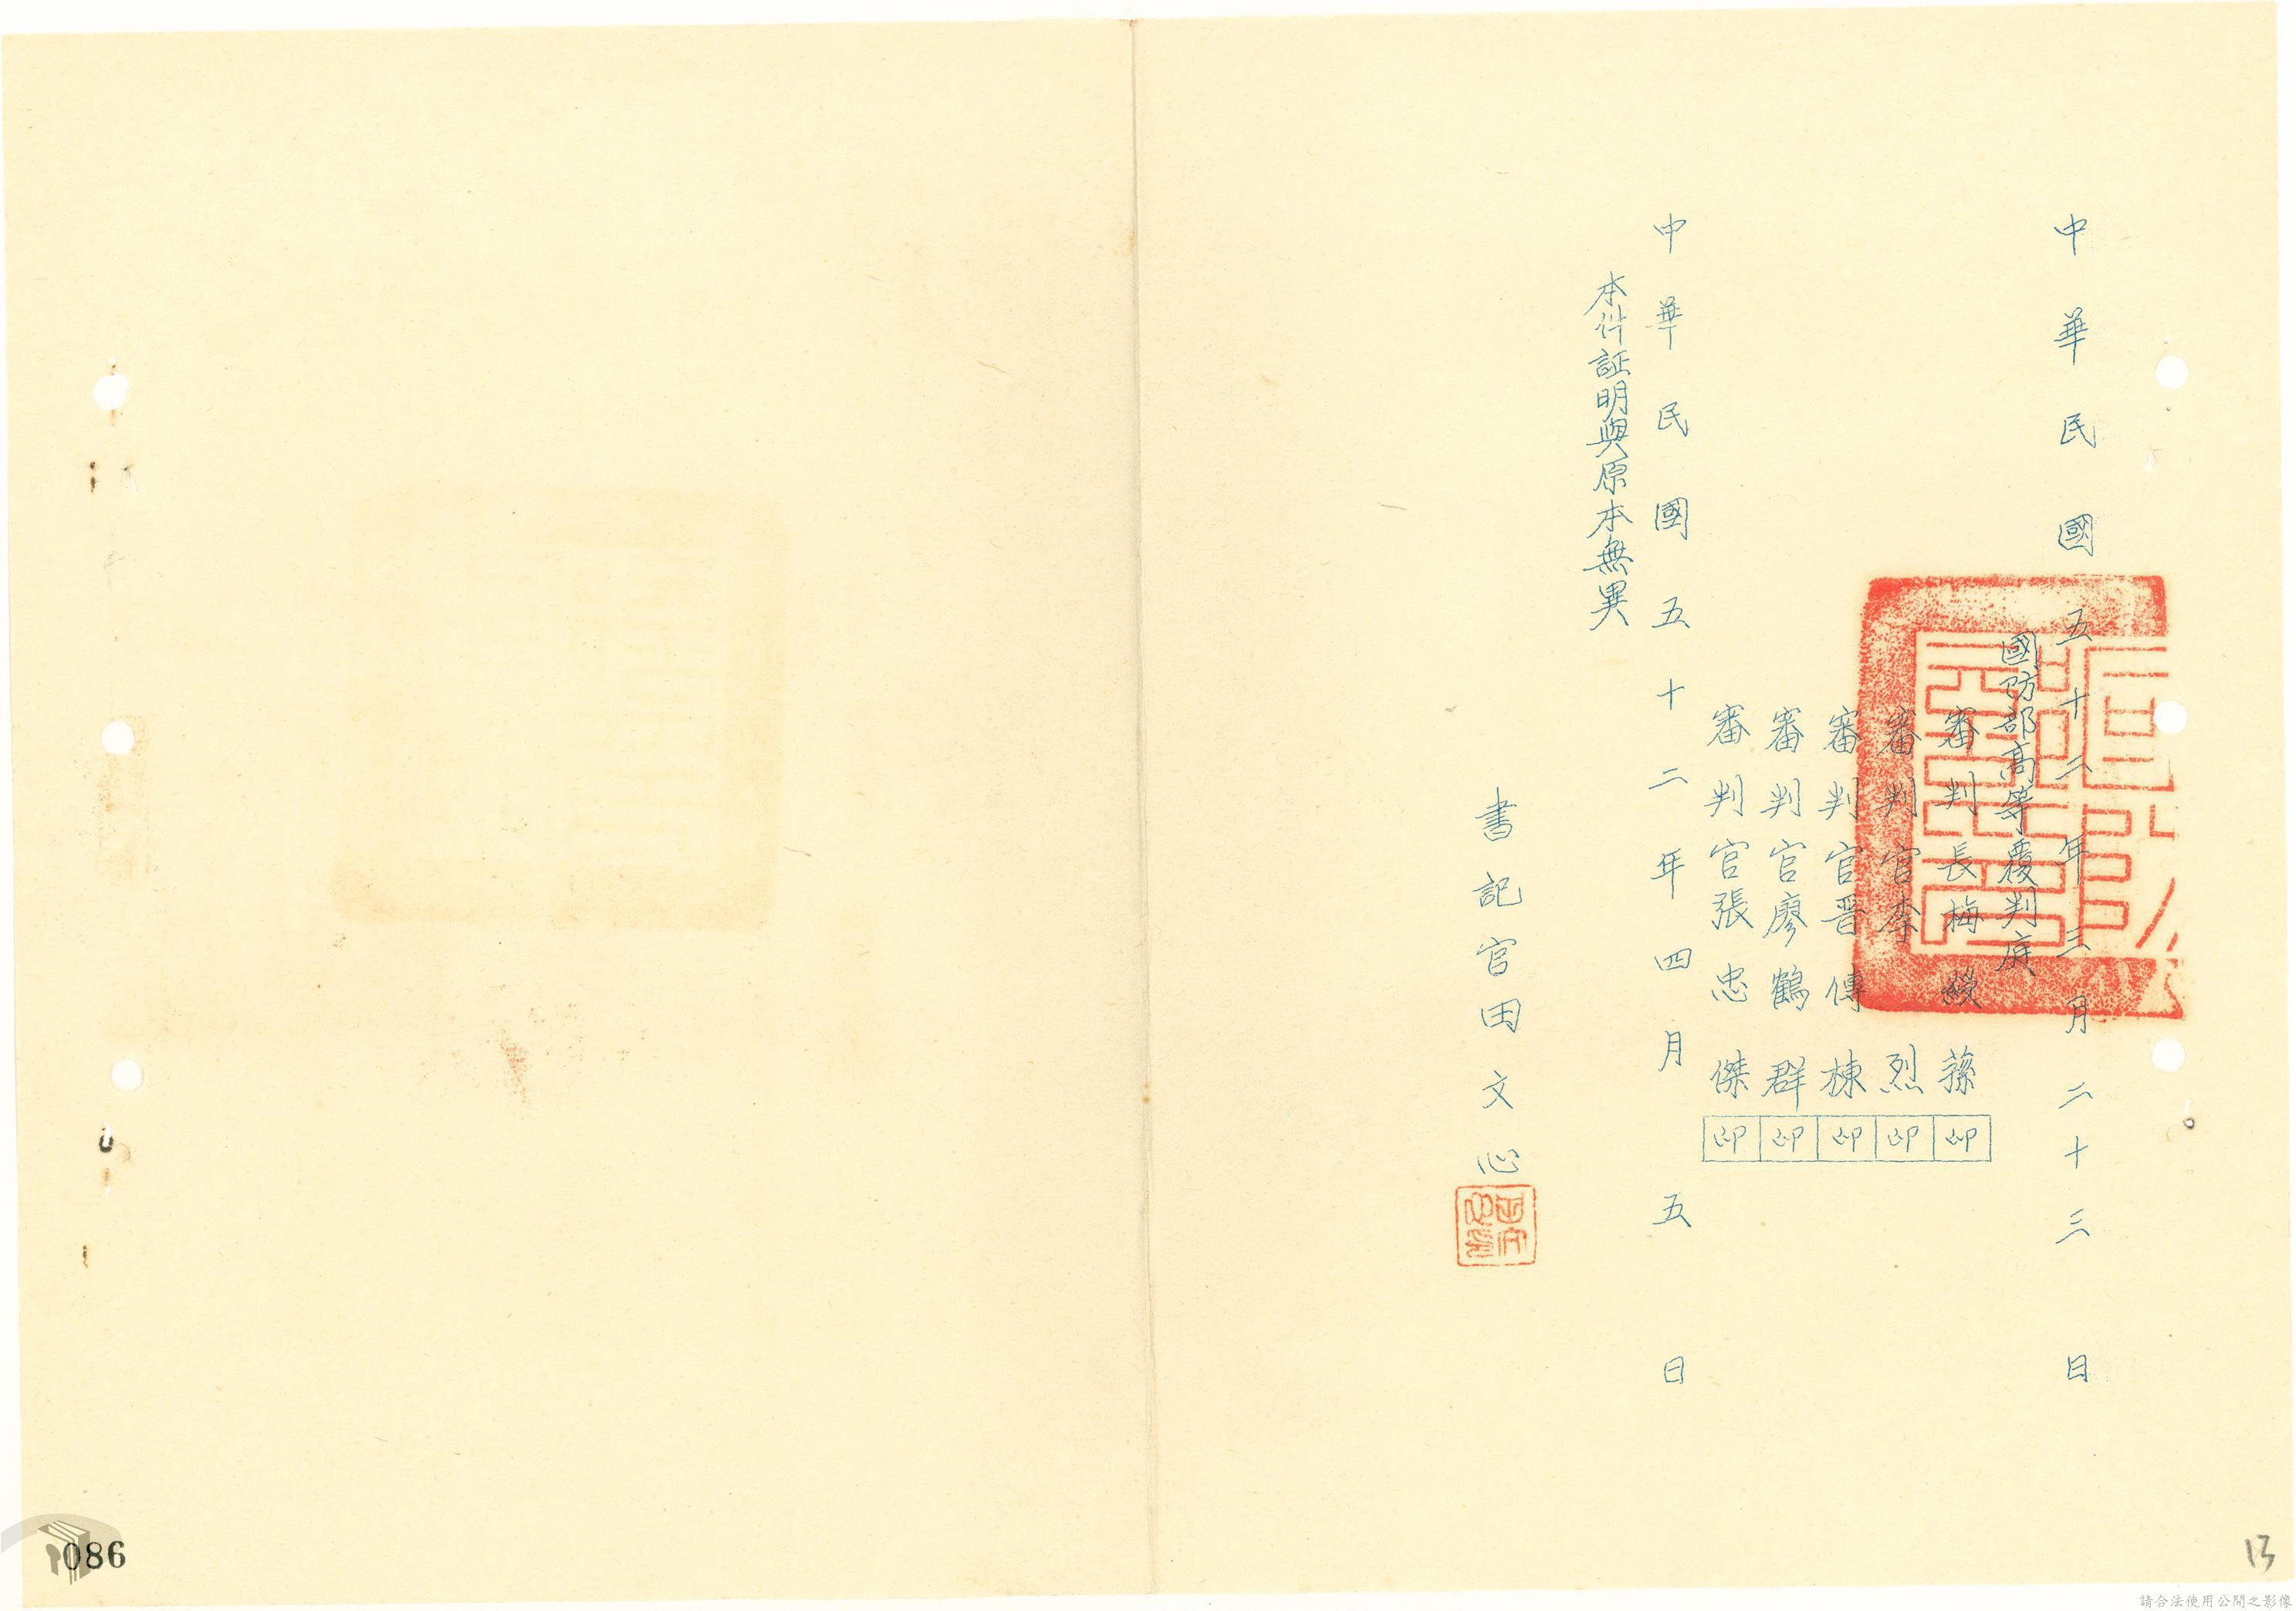 中華民國五十二年三月二十三日
國防部高等覆判庭
審判長梅綬蓀印
審判官李烈印
審判官晋傳棟印
審判官廖鶴群印
審判官張忠傑印
中華民國五十二年四月五日
本件証明與原本無異
書記官田文心
13
086
請合法使用公開之影像